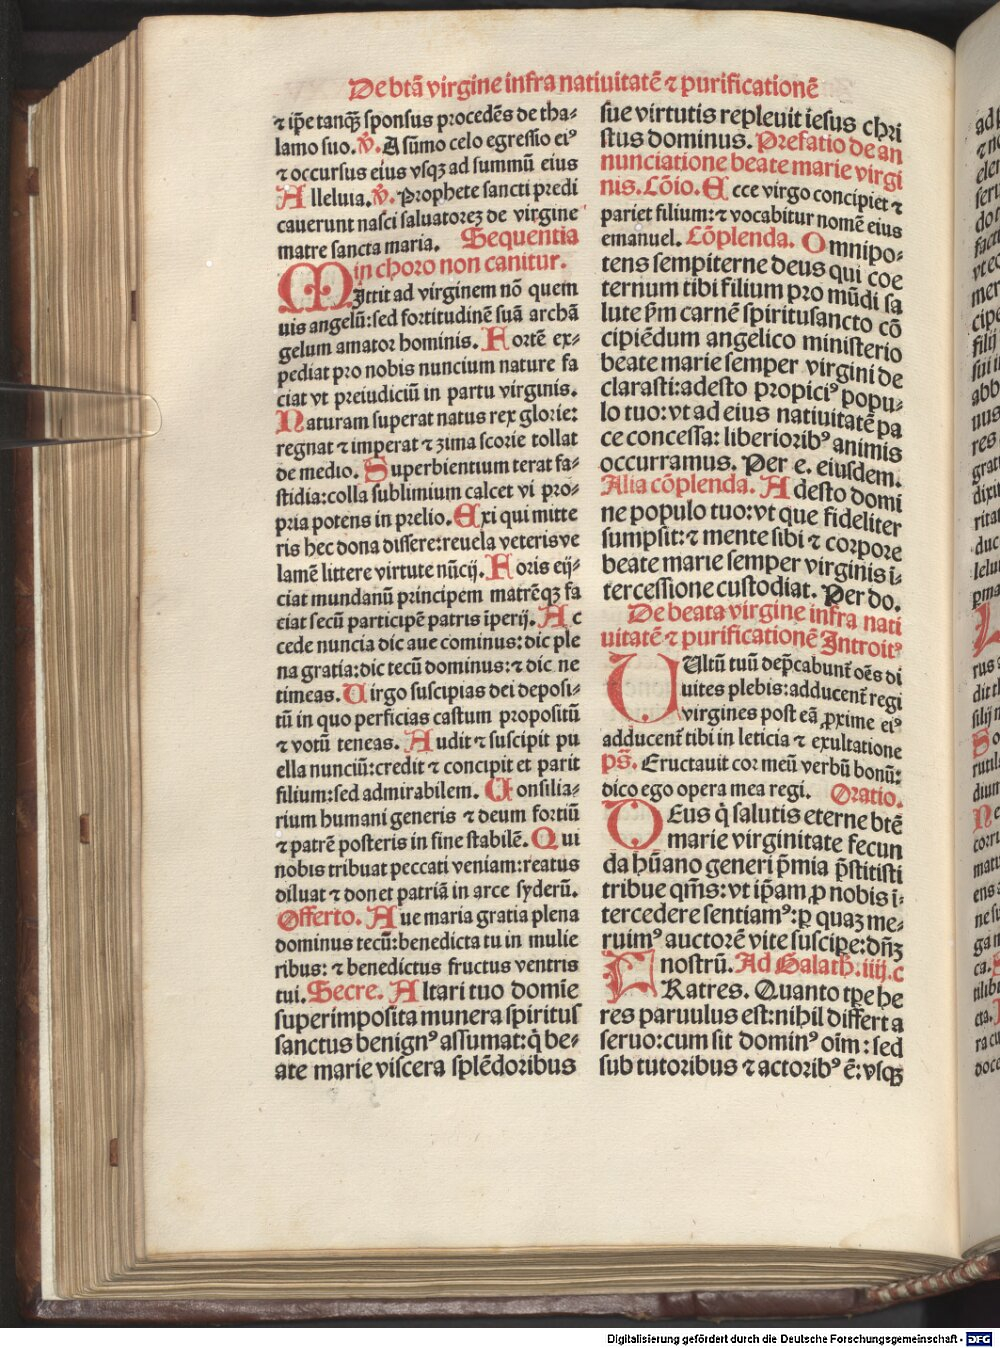 De btā virgine infra natiuitatē ⁊ purificationē
⁊ ip̄e tanqꝫ sponsus procedēs de tha⸗
lamo suo. ℣. A sūmo celo egressio eiꝰ
⁊ occursus eius vsqꝫ ad summū eius
Alleluia. ℣. Prophete sancti predi
cauerunt nasci saluatorēꝫ de virgine
matre sancta maria. Sequentia
in choro non canitur.
Mittit ad virginem nō quem
uis angelū: sed fortitudinē suā archā
gelum amator hominis. Fortē ex⸗
pediat pro nobis nuncium nature fa
ciat vt preiudiciū in partu virginis.
Naturam superat natus rex glorie:
regnat ⁊ imperat ⁊ zima scorie tollat
de medio. Superbientium terat fa⸗
stidia: colla sublimium calcet vi pro⸗
pria potens in prelio. Exi qui mitte
ris hec dona dissere: reuela veteris ve
lamē littere virtute nūcij. Foris eij⸗
ciat mundanū principem matrēqꝫ fa
ciat secū participē patris īperij. Ac
cede nuncia dic aue cominus: dic ple
na gratia: dic tecū dominus: ⁊ dic ne
timeas. Virgo suscipias dei deposi⸗
tū in quo perficias castum propositū
⁊ votū teneas. Audit ⁊ suscipit pu
ella nunciū: credit ⁊ concipit et parit
filium: sed admirabilem. Consilia⸗
rium humani generis ⁊ deum fortiū
⁊ patrē posteris in fine stabilē. Qui
nobis tribuat peccati veniam: reatus
diluat ⁊ donet patriā in arce syderū.
Offerto. Aue maria gratia plena
dominus tecū: benedicta tu in mulie
ribus: ⁊ benedictus fructus ventris
tui. Secre. Altari tuo domīe
superimposita munera spiritus
sanctus benignꝰ assumat: q̇ be⸗
ate marie viscera splēdoribus
sue virtutis repleuit iesus chri
stus dominus. Prefatio de an
nunciatione beate marie virgi
nis. Cōio. Ecce virgo concipiet ⁊
pariet filium: ⁊ vocabitur nomē eius
emanuel. Cōplenda. Omnipo⸗
tens sempiterne deus qui coe
ternum tibi filium pro mūdi sa
lute p̄m carnē spiritusancto cō
cipiēdum angelico ministerio
beate marie semper virgini de
clarasti: adesto propiciꝰ popu⸗
lo tuo: vt ad eius natiuitatē pa
ce concessa: liberioribꝰ animis
occurramus. Per e. eiusdem.
Alia cōplenda. Adesto domi
ne populo tuo: vt que fideliter
sumpsit: ⁊ mente sibi ⁊ corpore
beate marie semper virginis i⸗
tercessione custodiat. Per do.
De beata virgine infra nati
uitatē ⁊ purificationē Introitꝰ
Vultū tuū dep̄cabunt̄ oēs di
uites plebis: adducent̄ regi
virgines post eā ꝓxime eiꝰ
adducent̄ tibi in leticia ⁊ exultatione
ps̄. Eructauit cor meū verbū bonū:
dico ego opera mea regi. Oratio.
Deus q̇ salutis eterne btē
marie virginitate fecun
da hūano generi p̄mia p̄stitisti
tribue qm̄s: vt ip̄am ꝓ nobis i⸗
tercedere sentiamꝰ: ꝑ quaꝫ me⸗
ruimꝰ auctorē vite suscipe: dn̄ꝫ
nostrū. Ad Galath. iiij. c
FRatres. Quanto tꝑe he
res paruulus est: nihil differt a
seruo: cum sit dominꝰ oīm: sed
sub tutoribus ⁊ actoribꝰ ē: vsqꝫ
Digitalisierung gefördert durch die Deutsche Forschungsgemeinschaft - DFG